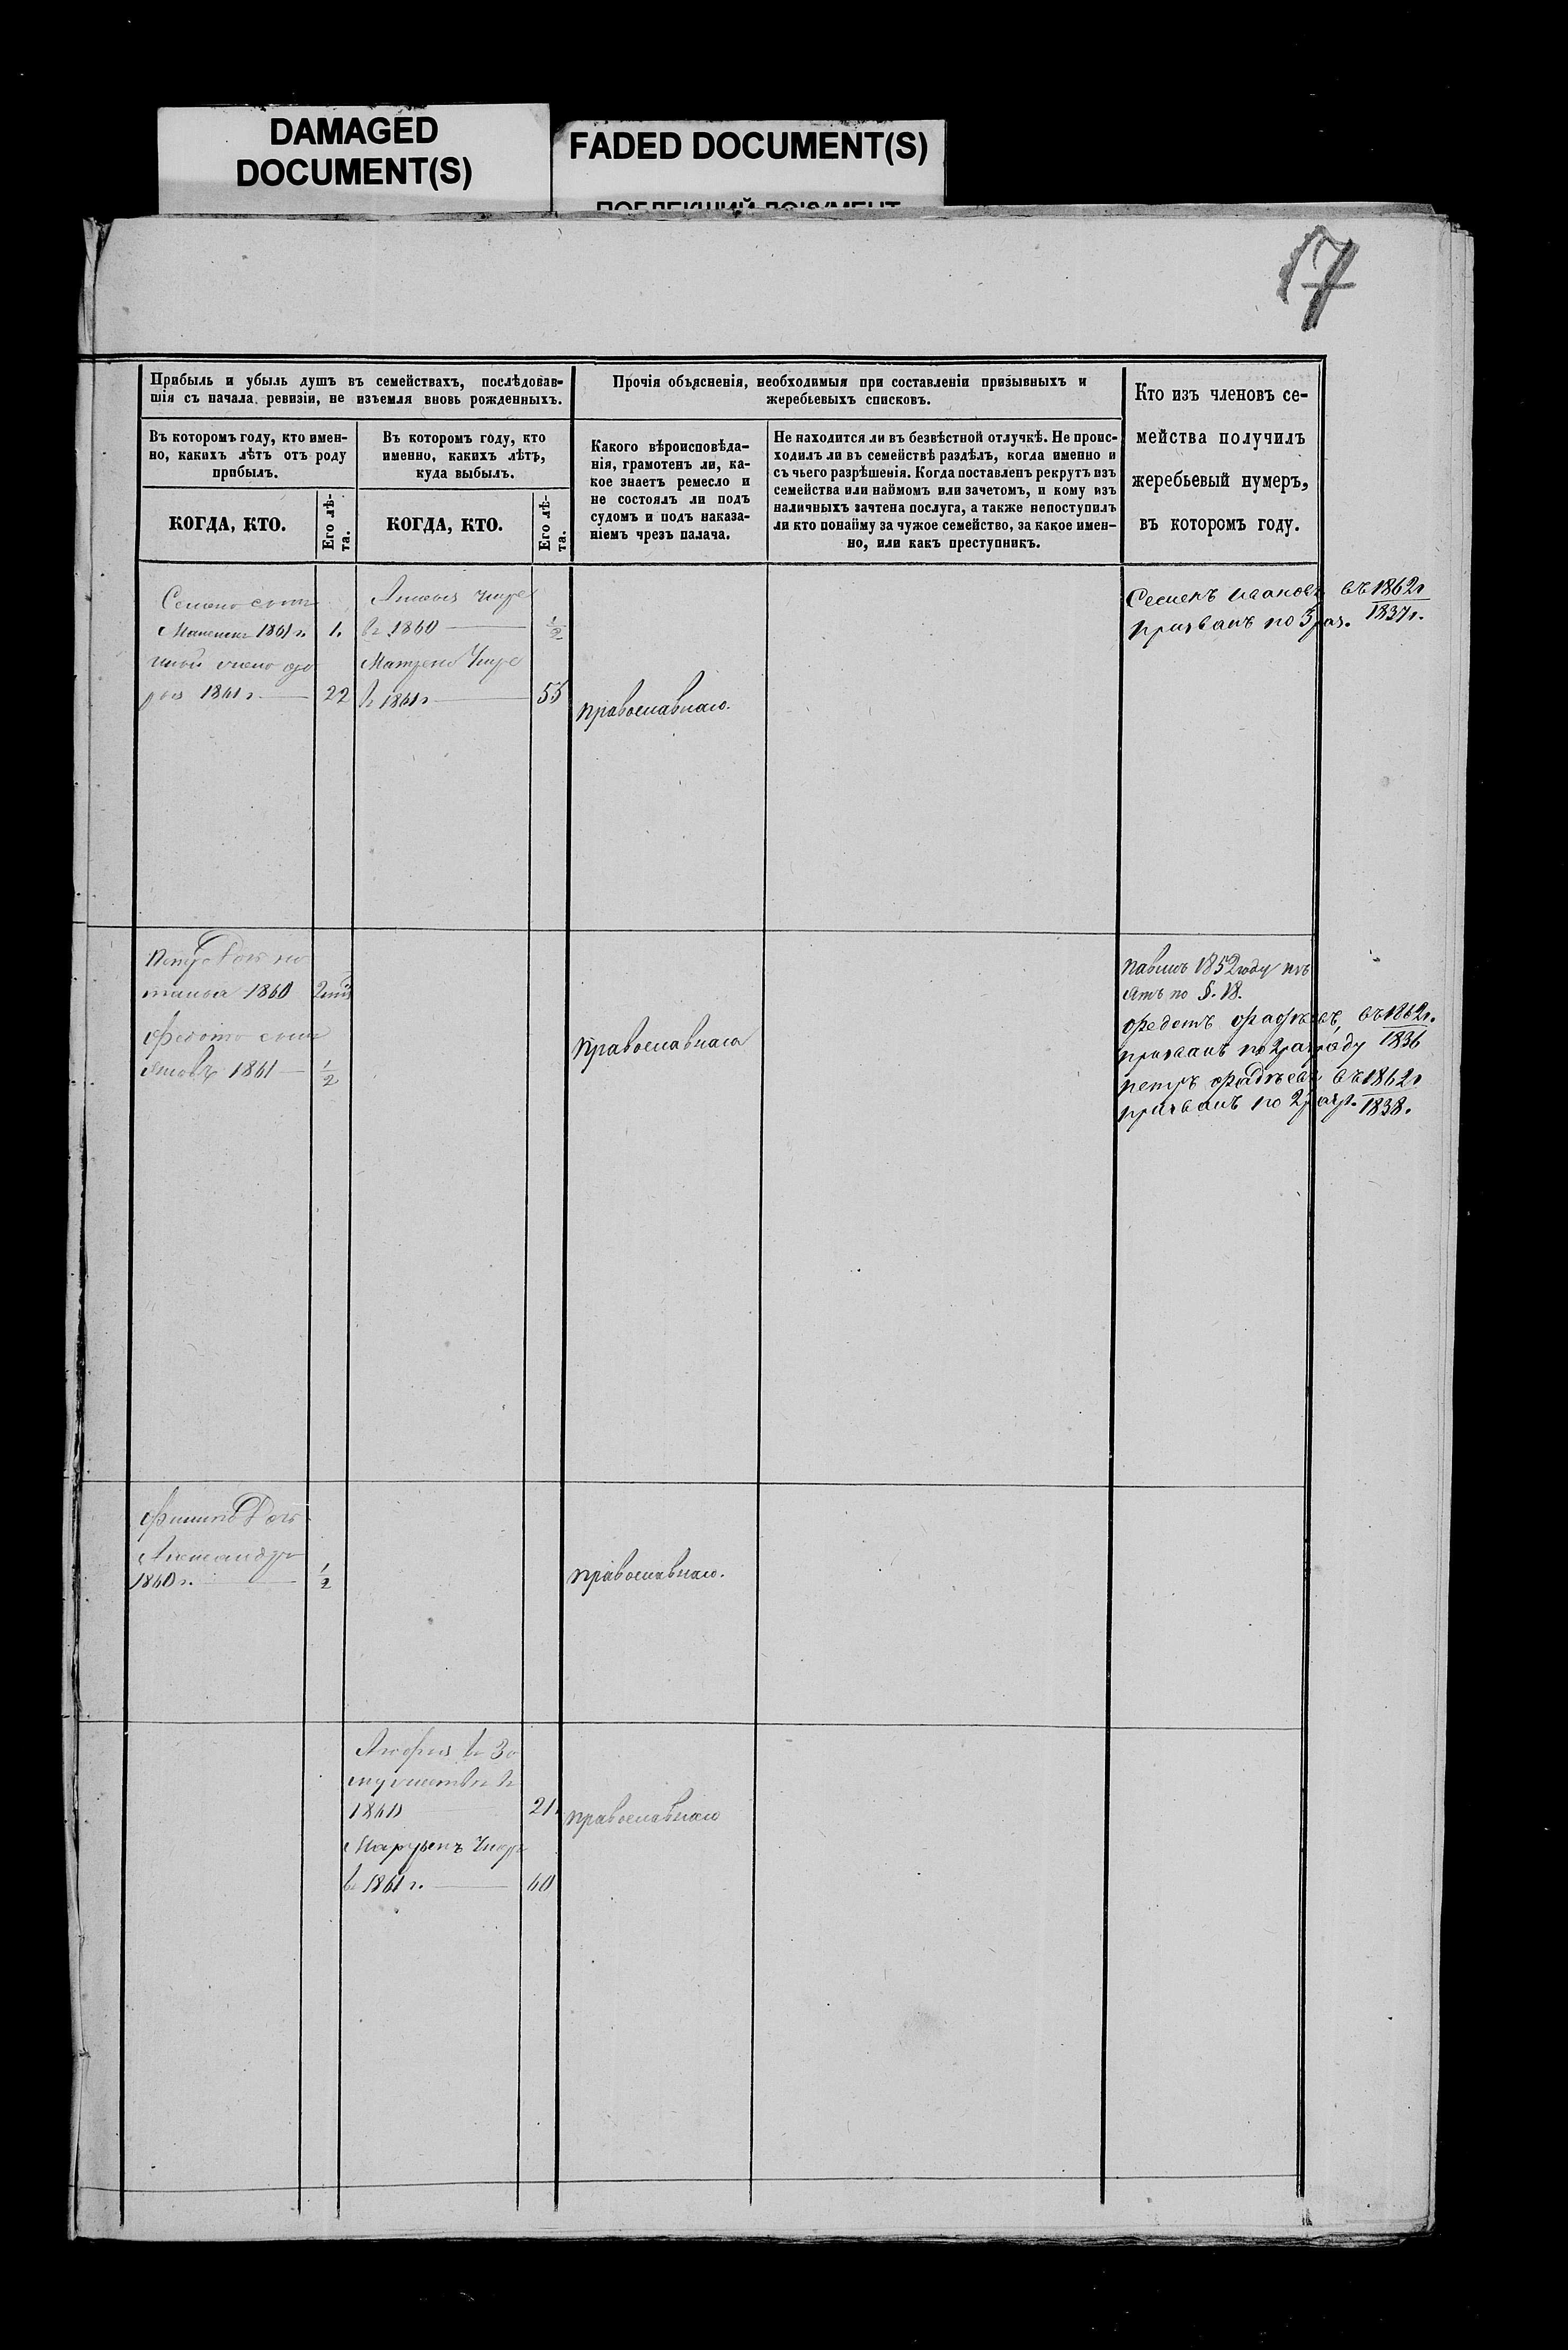 DAMAGED
DOCUMENT(S)
FADED DOCUMENT(S)
ПОБЛЕКШИЙ ДОКУМЕНТ
17
Прибыль и убыль душъ въ семействахъ, послѣдовав-
шія съ начала ревизіи, не изъемля вновь рожденныхъ.
Въ которомъ году, кто имен-
но, какихъ лѣтъ отъ роду
прибылъ.
КОГДА, КТО.
Его лѣ-
та.
Въ которомъ году, кто
именно, какихъ лѣтъ,
куда выбылъ.
КОГДА, КТО.
Его лѣ-
та.
Прочія объясненія, необходимыя при составленіи призывныхъ и
жеребьевыхъ списковъ.
Какого вѣроисповѣда-
нія, грамотенъ ли, ка-
кое знаетъ ремесло и
не состоялъ ли подъ
судомъ и подъ наказа-
ніемъ чрезъ палача.
Не находится ли въ безвѣстной отлучкѣ. Не проис-
ходилъ ли въ семействѣ раздѣлъ, когда именно и
съ чьего разрѣшенія. Когда поставленъ рекрутъ изъ
семейства или наймомъ или зачетомъ, и кому изъ
наличныхъ зачтена послуга, а также непоступилъ
ли кто понайму за чужое семейство, за какое имен-
но, или какъ преступникъ.
Кто изъ членовъ се-
мейства получилъ
жеребьевый нумеръ,
въ которомъ году.
Семено сынъ
1861 г. 1.
1861 г. 22
умре
въ 1860 1/2
Матрена Умре
въ 1861 г 55
православнаго.
Семенъ Ивановъ въ 1862 г
призванъ по 3 раз. 1837 г.
Петр дочь
1860
Федота сынъ
1861 1/2
православнаго
1852 году
по §. 18.
Федотъ въ 1862 г.
призванъ по 2 разряду 1836
Петръ Фадѣевъ въ 1862 г
призванъ по 2 разр. 1838.
Филипа Дочь
Александра
1860 г. 1/2
православнаго.
въ За
мужество въ
1860 21
Умре
въ 1861 г. 60
православнаго